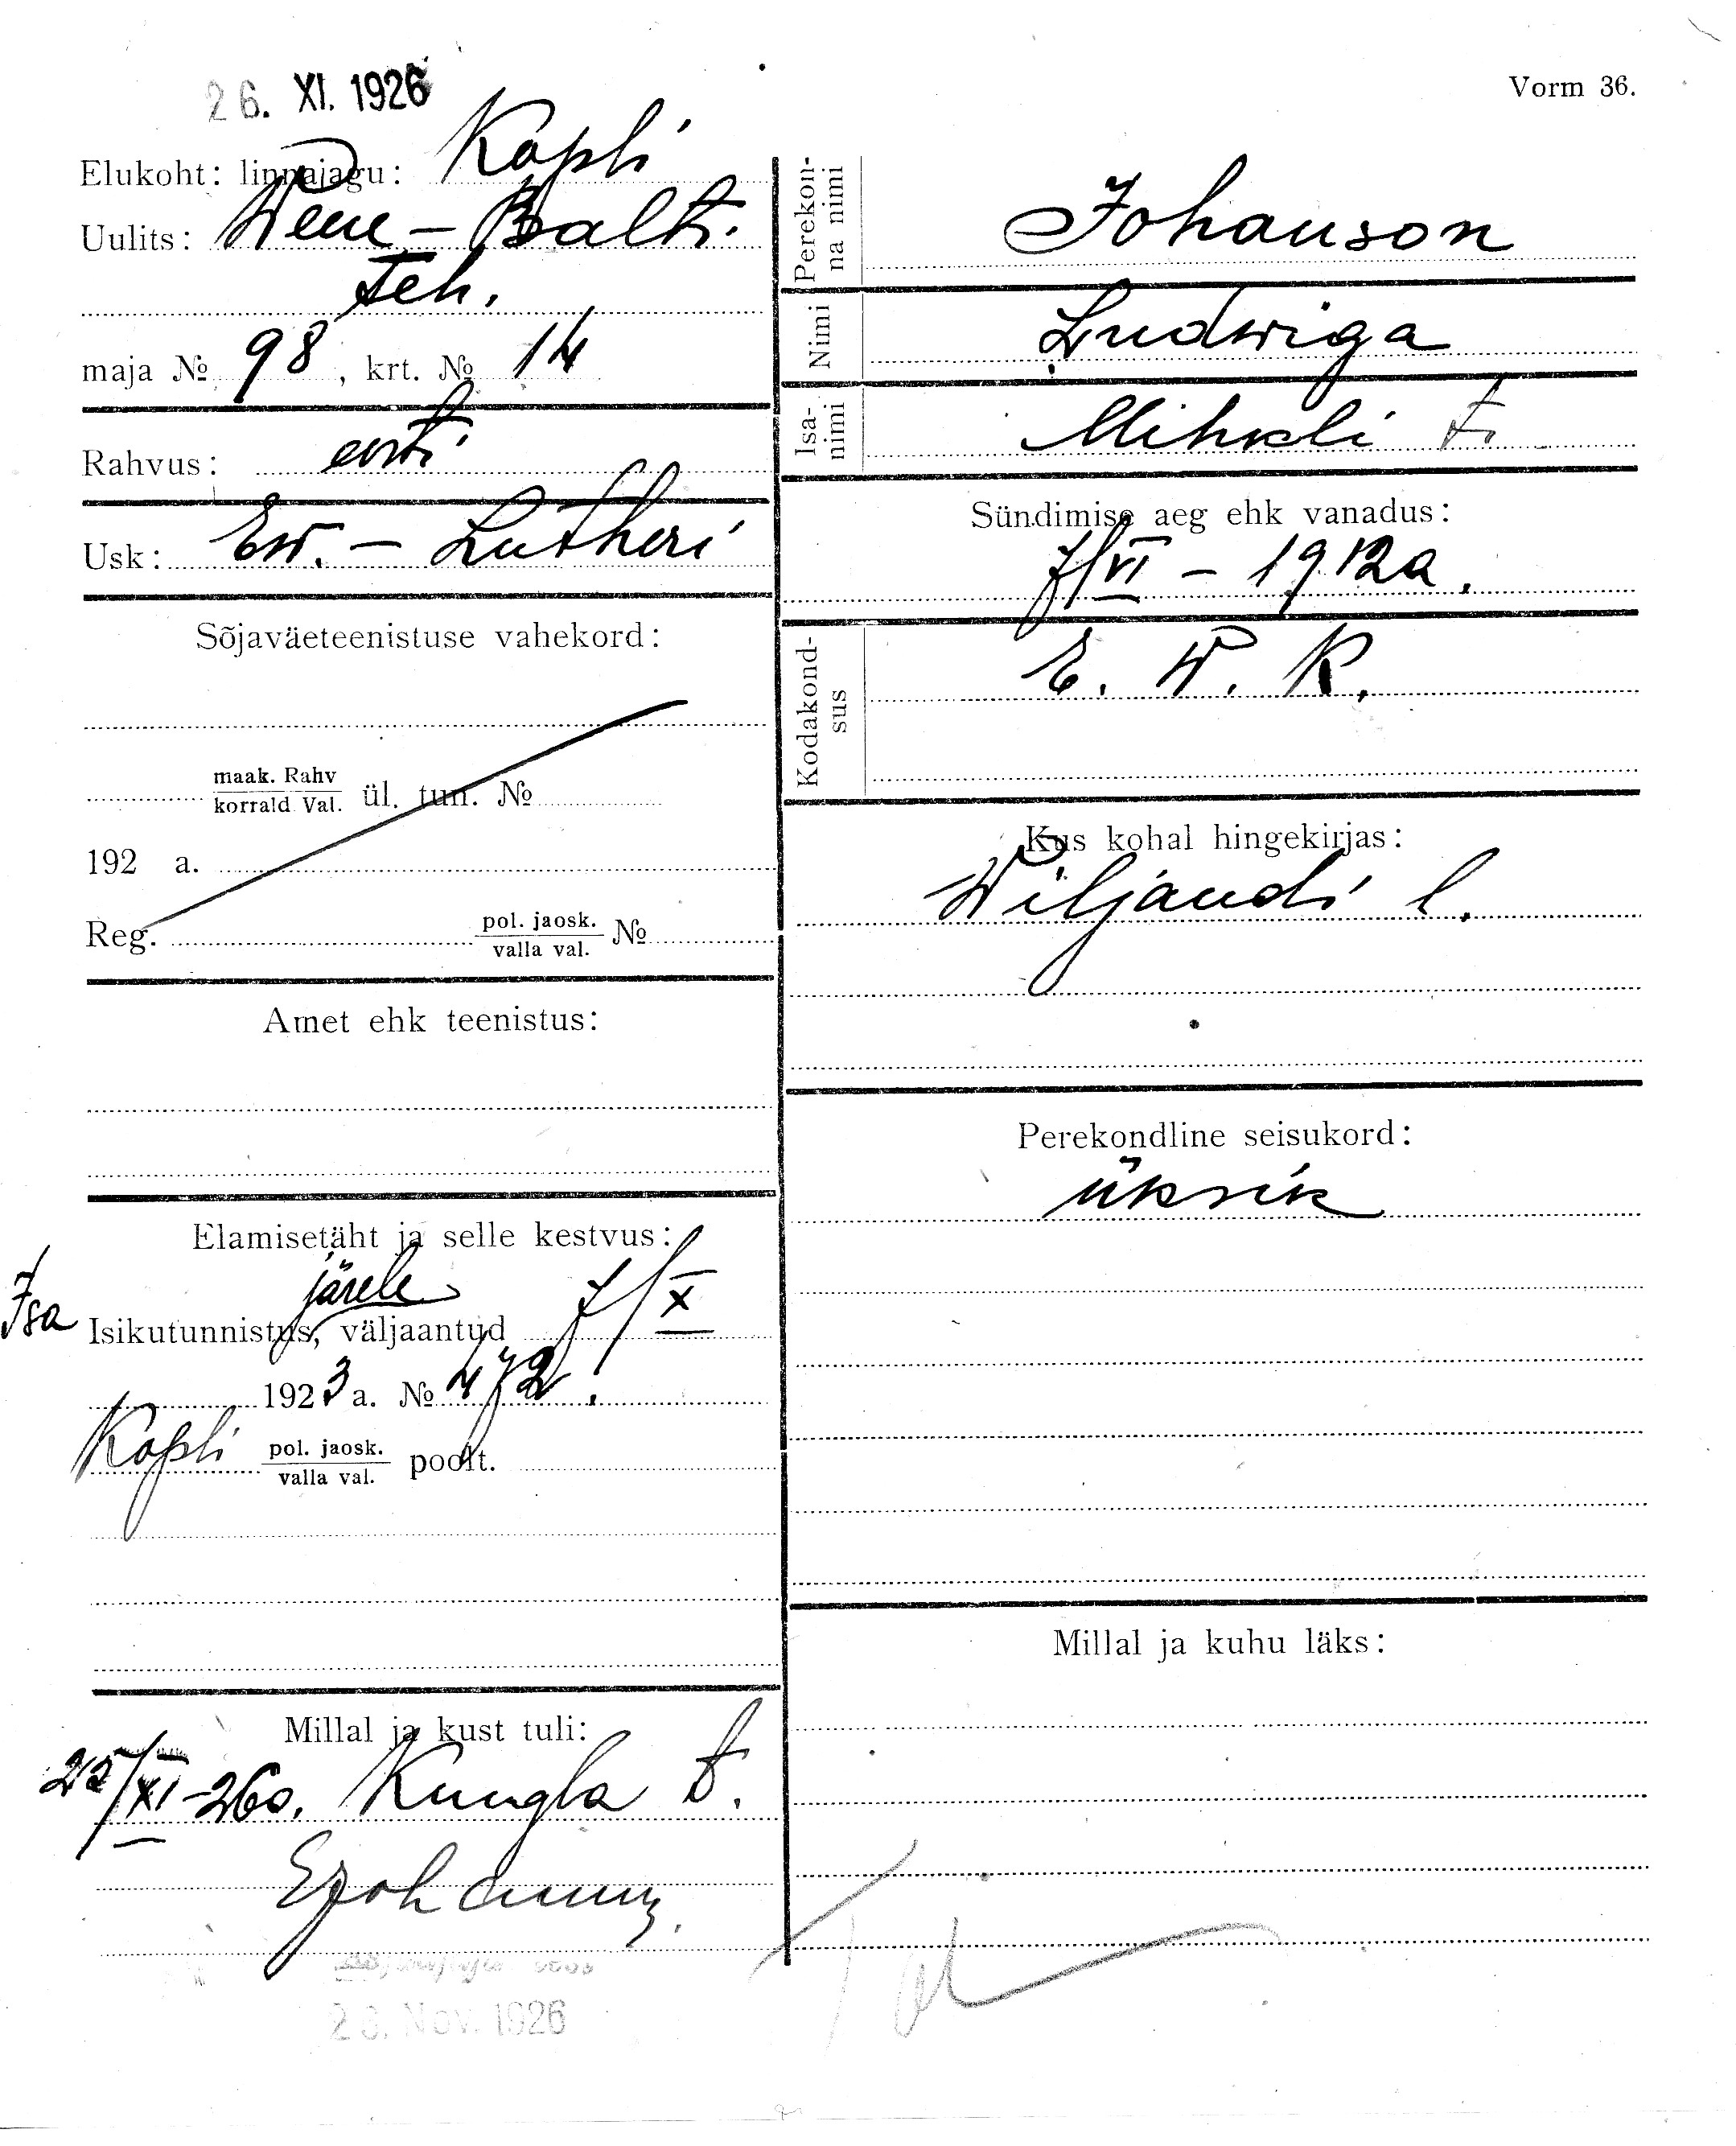 26. XI. 1926
Vorm 36.
Elukoht: linnajagu: Kopli
Uulits: Wene-Balti
teh.
maja № 98, krt. № 14
Rahvus: eesti
Usk: Ew. - Lutheri
Sõjaväeteenistuse vahekord:
maak. Rahv
korrald Val. ül. tun. №
192 a.
Reg. pol. jaosk. №
valla val.
Amet ehk teenistus:
Elamisetäht ja selle kestvus:
järele
Isa Isikutunnistus, väljaantud 7/X
1923 a. № 472.
Kopli pol. jaosk. poolt.
valla val.
Millal ja kust tuli:
25/XI-26a. Kungla t.
23. Nov. 1926
Perekon-
na nimi
Johanson
Nimi
Ludwiga
Isa-
nimi
Mihkli t.
Sündimise aeg ehk vanadus:
7/VI - 1912a.
Kodakond-
sus
E. W. K.
Kus kohal hingekirjas:
Wiljandi l.
Perekondline seisukord:
üksik
Millal ja kuhu läks: